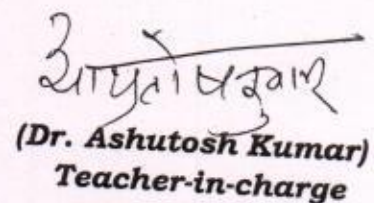 आशुतोष कुमार
(Dr. Ashutosh Kumar)
Teacher-in-charge